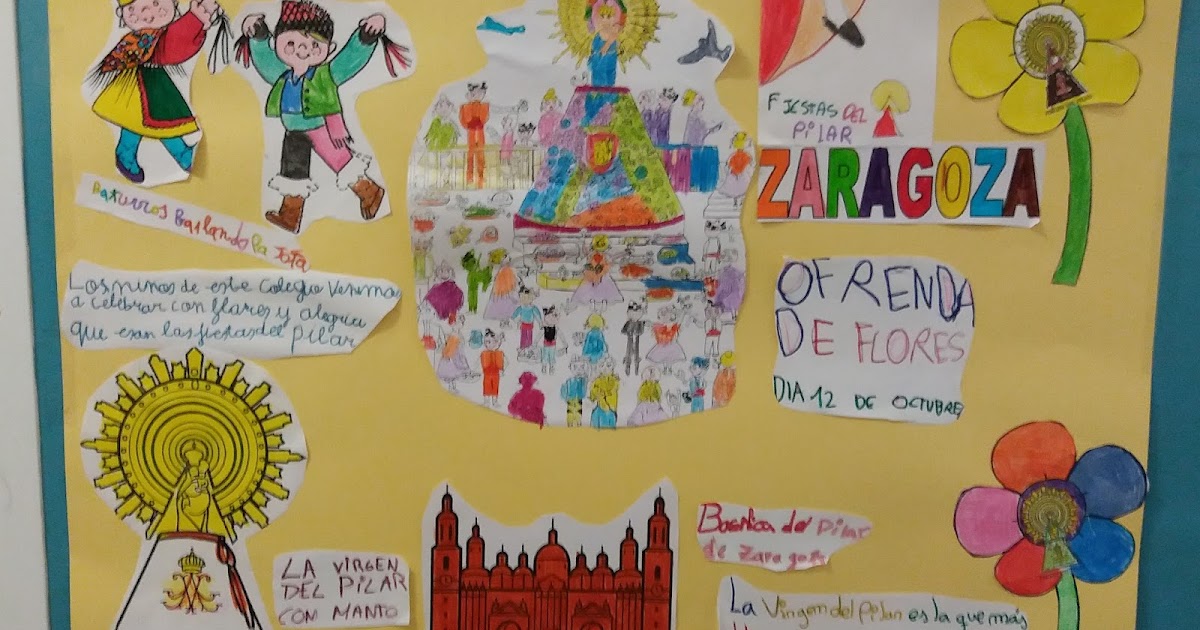 Baturros Bailando la Jota
Los niños de este Colegio Venimos
a celebrar con flores y alegria
que esan las fiestas del pilar
LA VIRGEN
DEL PILAR
CON MANTO
FIESTAS DEL
PILAR
ZARAGOZA
OFRENDA
DE FLORES
DIA 12 DE OCTUBRE
Basilica del Pilar
de Zaragoza
La Virgen del Pilar es la que más